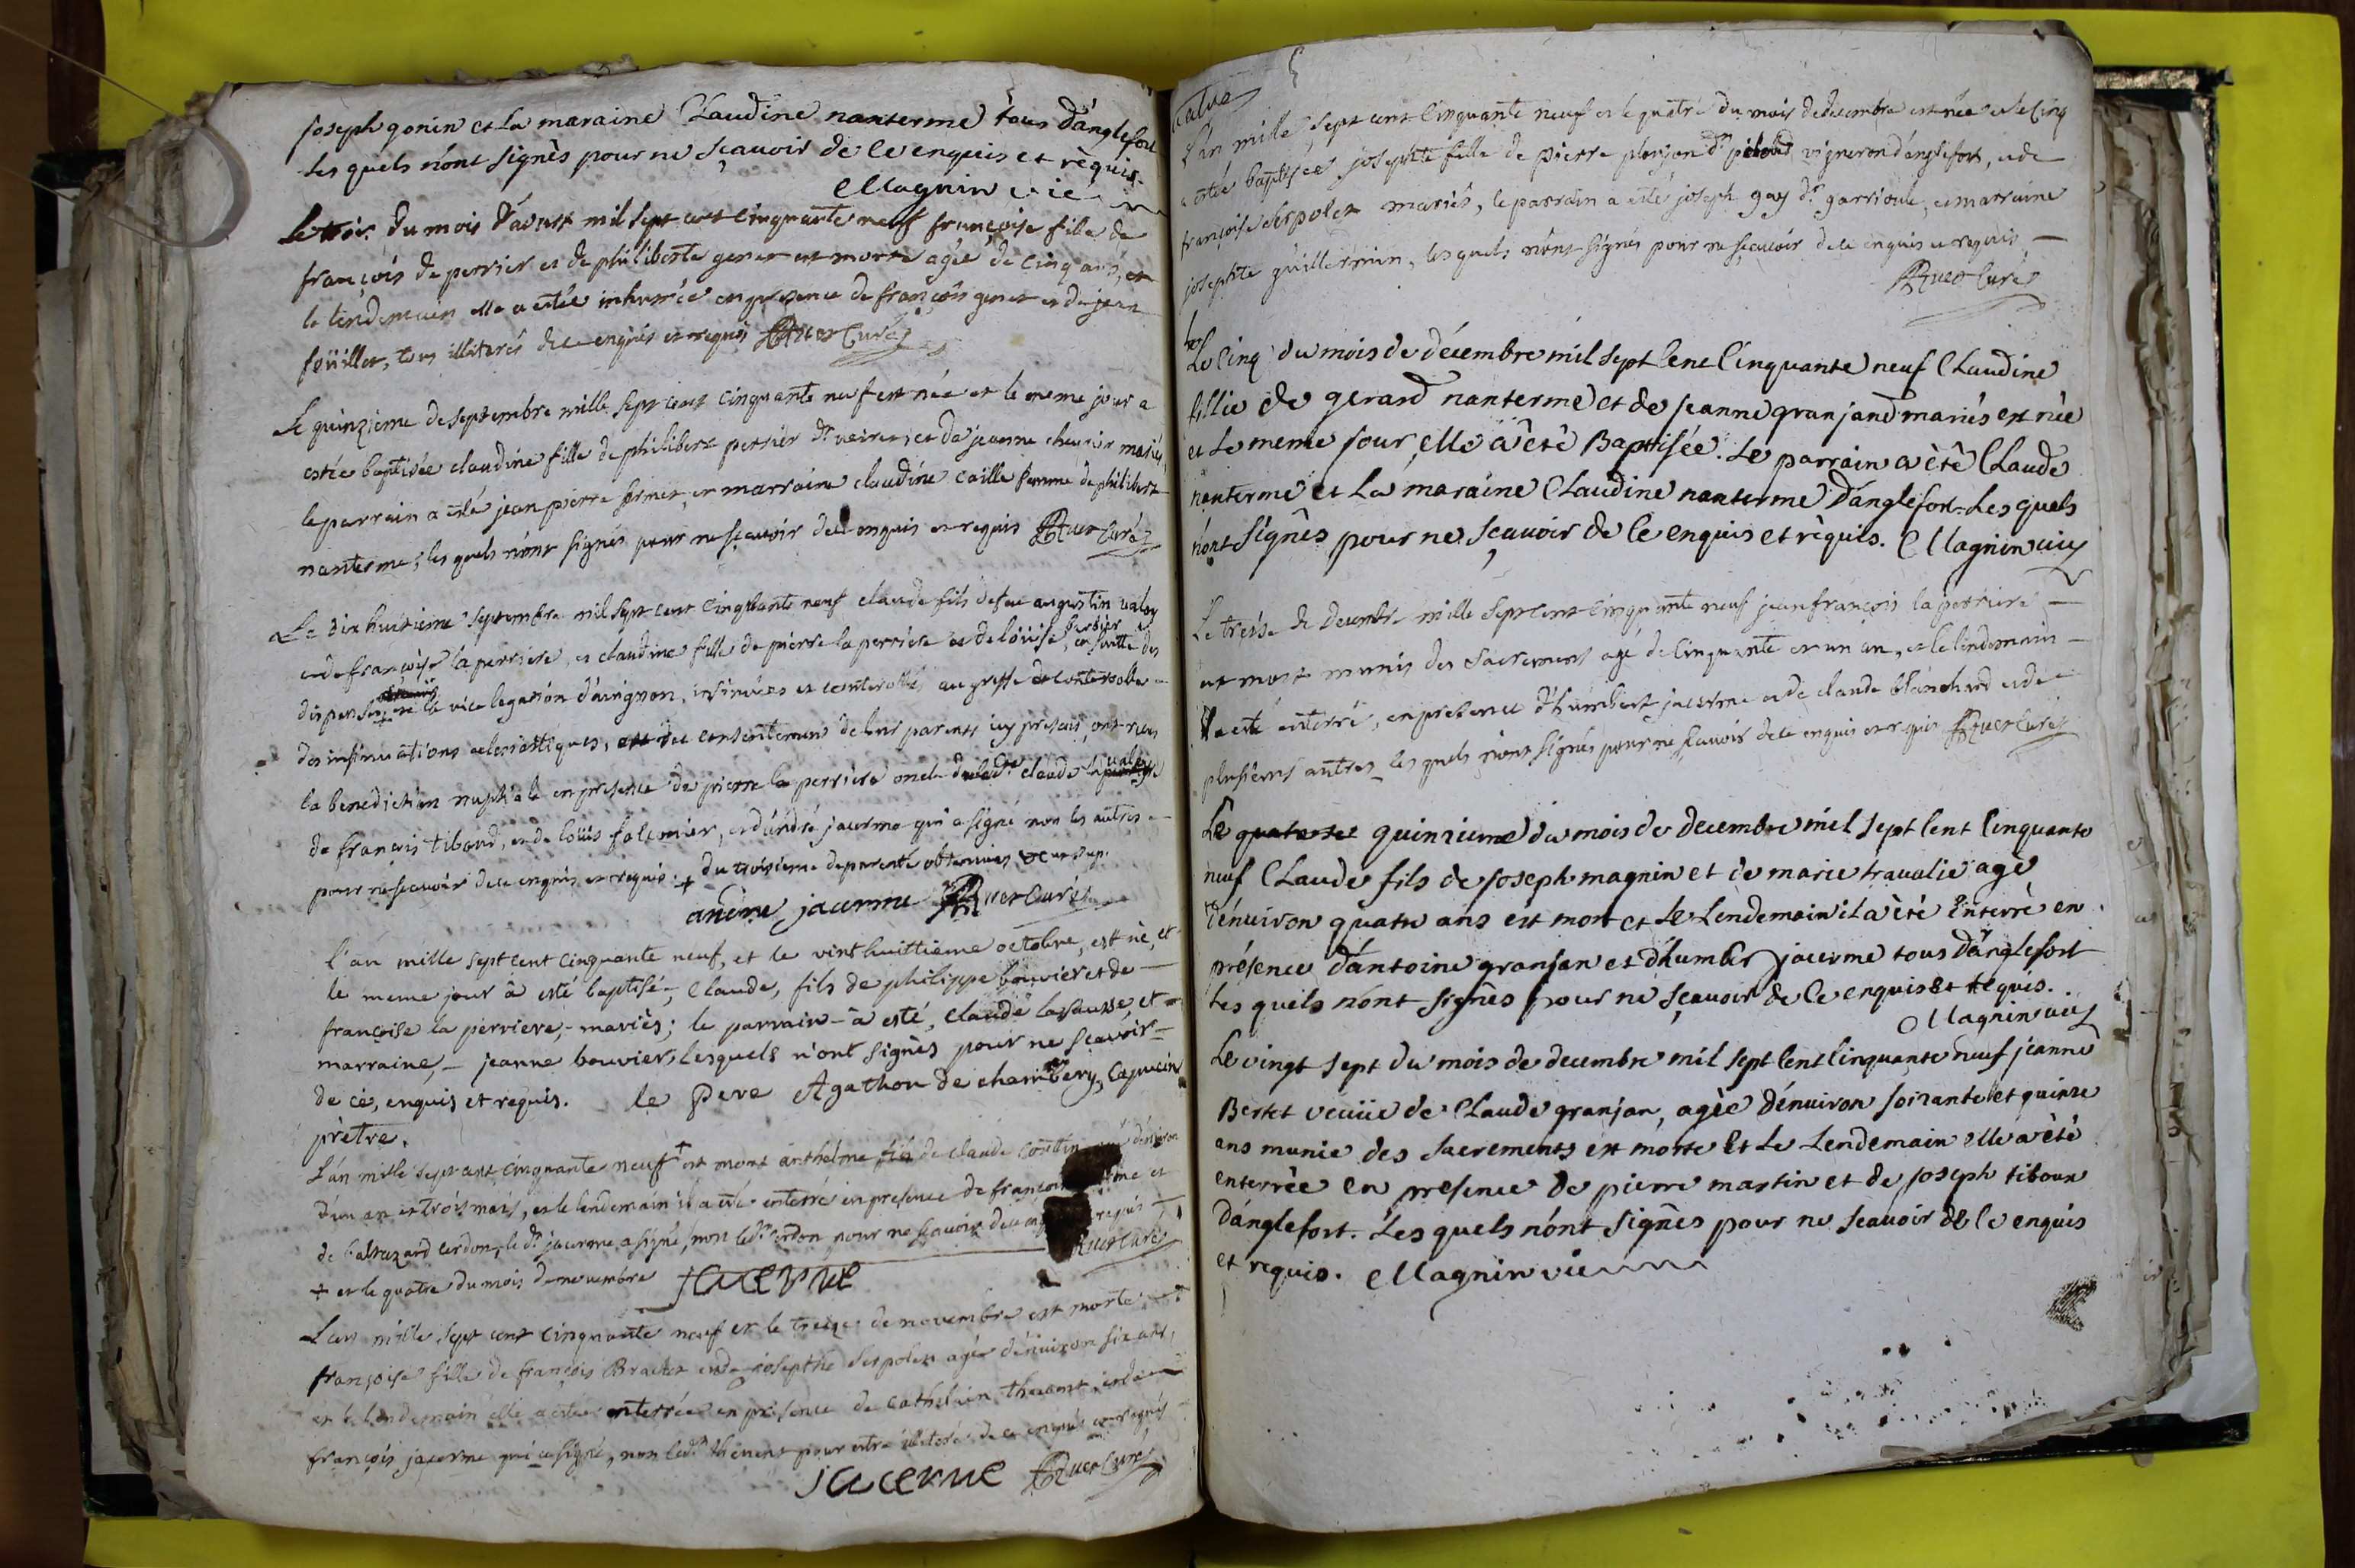 joseph gonin et La maraine Claudine nanterme tous d'anglefort
Les quels n'ont signès pour ne sçauoir de ce enquis et rèquis.
Magnin vic
Le trois du mois d'aoust mil sept cent cinquante neuf françoise fille de
françois de perrier et de philiberte genet est morte agée de cinq ans, et
le lendemain elle a estée inhumée en presence de françois genet et de jean
feüillet, tous illiterés de ce enquis et requis Ruet Curé
Le quinzieme de septembre mille sept cent cinquante neuf est née et le meme jour a
estée baptisée claudine fille de philibert perrier dt et de jeanne cheurier mariés,
le parrain a esté jean pierre et marraine claudine caille femme de philibert
nanterme, les quels n'ont signés pour ne sçauoir de ce enquis et requis Ruet Curé
Le dix huitieme septembre mil sept cent cinquante neuf claude fils de feu augustin
et de françoise la perriere, et claudine fille de pierre la perriere et de loüise en suitte des
dispenses de la vice legation d'auignon, insinuées et controllés au greffe de
des insinuations eclesiastiques, et du consentement de leur parents icy presens, ont reçu
la benediction nuptiale en presence de pierre la perriere oncle claude
de françois tiband, et de loüis falconier, et d'andré jacerme qui a signé non les autres
pour ne sçauoir de ce enquis et requis. + du troisieme de parenté obtenües
andre jacerme Ruet Curé
l'an mille sept cent cinquante neuf, et le vint huittieme octobre, est né, et
le meme jour à esté baptisé, Claude, fils de philippe bouvier et de
françoise la perriere, mariés; le parrain a esté, Claude lasausse, et
marraine, jeanne bouvier lesquels n'ont signès pour ne scavoir
de ce, enquis et requis. le Pere Agathon de chambery, Capucin
prêtre.
L'an mille sept cent cinquante neuf + est mort anthelme fils de claude
d'un an et trois mois, et le lendemain il a esté enterré en presence de françois et
de baltazard cerdon, le dt jacerme a signé, non le dt cerdon pour ne sçauoir de ce requis
+ et le quatre du mois de nouembre jacerme Ruet Curé
L'an mille sept cent cinquante neuf et le treize de novembre est morte
françoise fille de françois Brachet et de josepthe serpolet agée d'enuiron six ans,
et le lendemain elle a estée enterrée en presence de cathelin et de
françois jacerme qui a signé, non le dt pour estre illiteré de ce enquis et requis
jacerme Ruet Curé
L'an mille sept cent cinquante neuf et le quatre du mois de decembre est née et le cinq
a estée baptisée josephte fille de pierre dt vigneron d'anglefort, et de
françoise serpolet mariés, le parrain a esté joseph gay dt et marraine
josephte guillermin, les quels n'ont signés pour ne sçauoir de ce enquis et requis
Ruet Curé
Le cinq du mois de décembre mil sept cent cinquante neuf Claudine
fillie de gerard nanterme et de jeanne granjand mariés est née
et Le meme jour elle a èté Baptisée. Le parrain a èté Claude
nanterme et La maraine Claudine nanterme d'anglefort Les quels
n'ont signès pour ne sçauoir de ce enquis et rèquis. Magnin vic
Le treise de decembre mille sept cent cinquante neuf jean françois la perriere
est mort munis des sacrements agé de cinquante et un an, et le lendemain
a esté enterré, en presence d'humbert jacerme et de claude blanchard et de
plusieurs autres les quels n'ont signés pour ne sçauoir de ce enquis et requis Ruet Curé
Le quatorse quinzieme du mois de decembre mil sept cent cinquante
neuf Claude fils de joseph magnin et de marie trauolié agé
d'énuiron quatre ans est mort et Le Lendemain il a èté enterré en
présence d'antoine granjan et d'humber jacerme tous d'anglefort
Les quels n'ont signès pour ne sçauoir de ce enquis et réquis.
Magnin vic
Le vingt sept du mois de decembre mil sept cent cinquante neuf jeanne
Bertet veuüe de Claude granjan, agèe d'énuiron soixante et quinze
ans munie des sacrements est morte et Le Lendemain elle a èté
enterrèe en presence de pierre martin et de joseph tiboux
d'anglefort. Les quels n'ont signès pour ne sçauoir de ce enquis
et requis. Magnin vic